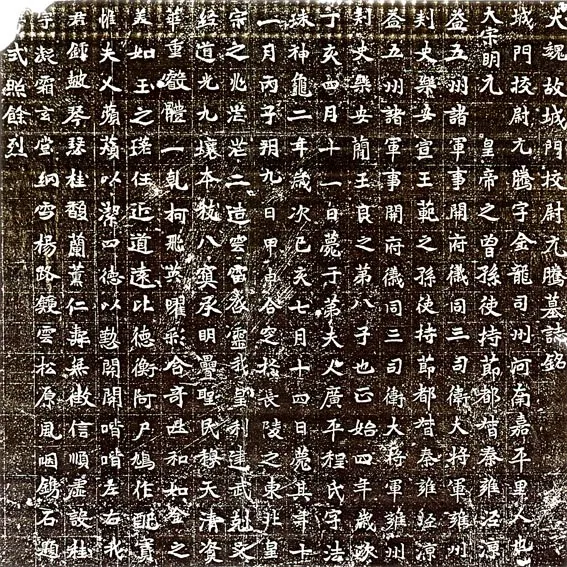 大魏故城門校尉元騰墓誌銘
城門校尉元騰字金龍司州河南嘉平里人也
大宗明元皇帝之曾孫使持節都督秦雍涇涼
益五州諸軍事開府儀同三司衛大將軍雍州
刺史樂安宣王範之孫使持節都督秦雍涇涼
益五州諸軍事開府儀同三司衛大將軍雍州
刺史樂安簡王良之第八子也正始四年歲次
丁亥四月十一日薨于第夫人廣平程氏字法
珠神龜二年歲次己亥七月十四日薨其年十
一月丙子朔九日甲申合窆於長陵之東北皇
宗之兆茫茫二造雲雷啟靈我皇利建武剋文
經道光九壤本枝八冥承明疊聖民穆天清資
華重敬體一乹柯飛英曜彩含奇迭和如金之
美如玉之瑳任近道遠比德衡阿尸鳩作配貴
惟夫人蘋蘩以潔四德以懃閨閫喈喈左右我
君鍾鼓琴瑟桂馥蘭薰仁壽無徵信順虛設桂
宇凝霜玄堂網雪楊路鍾雲松原風咽鐫石題
式照餘烈